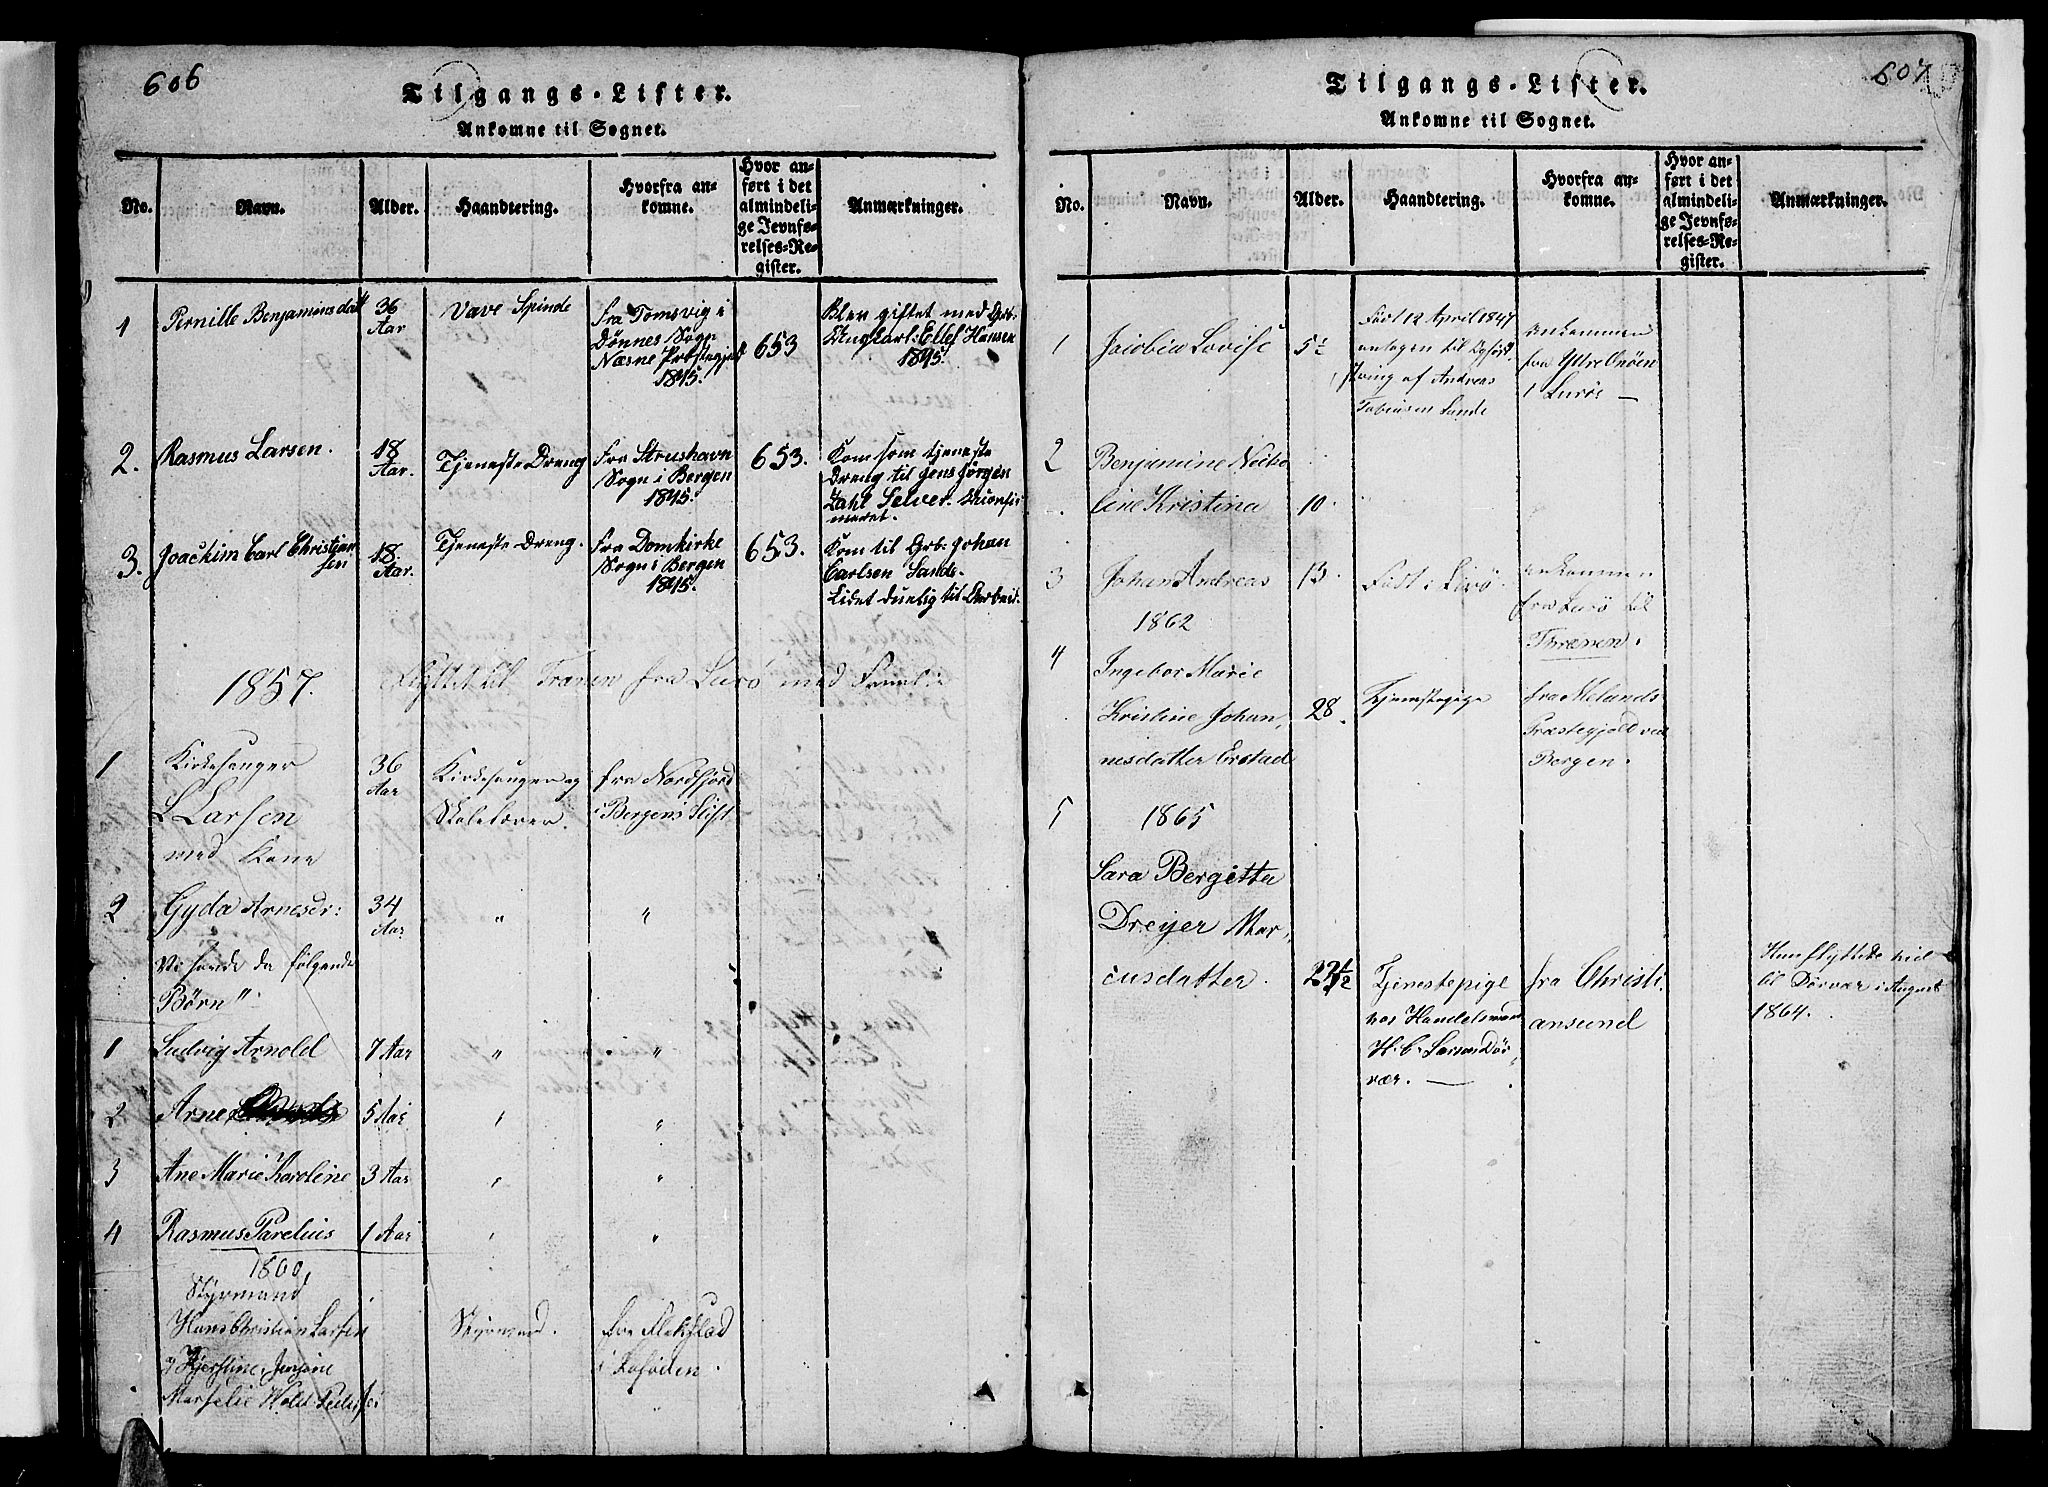 606
Tilgangs-Lister.
Ankomne til Sognet.
No.
Navn.
Alder.
Haandtering.
Hvorfra an-
komne.
Hvor an-
ført i det
almindeli-
ge Jevnfø-
relses-Re-
gister.
Anmærkninger.
1
Pernille Benjaminsdatt
36
Aar
Væve Spinde
fra Tomsvig i
Dønnes Sogn
Næsne Præstegjeld
1845.
653
Blev giftet med Grb.
Ellef Hansen
1845.
2.
Rasmus Larsen.
18
Aar.
Tjeneste Dreng
fra Strushavn
Sogn i Bergen
1845.
653.
Kom som tjeneste
Dreng til Jens Jørgen
Zahl Selver.
3.
Joachim Carl Christian
sen
18
Aar.
Tjeneste Dreng.
fra Domkirke
Sogn i Bergen
1845.
653.
Kom til Grb. Johan
Carlsen Sande.
Lidet duelig til Arbeid.
1857.
Flyttet til Trænen fra Lurø med Familie
1
Kirkesanger
L Larsen
med Kone
36
Aar
Kirkesanger og
Skolelærer.
fra Nordfjord
i Bergens Stift
2
Gyda Arnesdr:
34
Aar
"
"
følgende
Børn"
1
Ludvig Arnold
7 Aar
"
"
2
Arne
5 Aar
"
"
3
Ane Marie Karoline
3 Aar
"
"
4
Rasmus Parelius
1 Aar
"
"
1860
Styrmand
Hans Christian Larsen
Styrmand.
fra Flakstad
i Lofoden.
607
Tilgangs-Lister.
Ankomne til Sognet.
No.
Navn.
Alder.
Haandtering.
Hvorfra an-
komne.
Hvor an-
ført i det
almindeli-
ge Jevnfø-
relses-Re-
gister.
Anmærkninger.
1
Jacobia Lovise
5½
Født 12 April 1847
antagen til Opfost
string af Andreas
Tobiasen Sande
ankommen
fra Yttre Onøen
i Lurøe
2
Benjamine
line Kristina
10
3
Johan Andreas
13
Født i Lurø
ankommen
fra Lurø til
Thrænen.
1862
4
Ingebor Marie
Kristine Johan
nesdatter Erstad
28
Tjenestepige
fra Melands
Præstegjeld ved
Bergen.
5
1865
Sara Bergitta
Dreyer Mar
cusdatter.
Tjenestepige
hos Handelsmand
H. C. Larsen Dør
vær.
fra Christi
ansund
Hun flyttede hid
til Dørvær i August
1864.